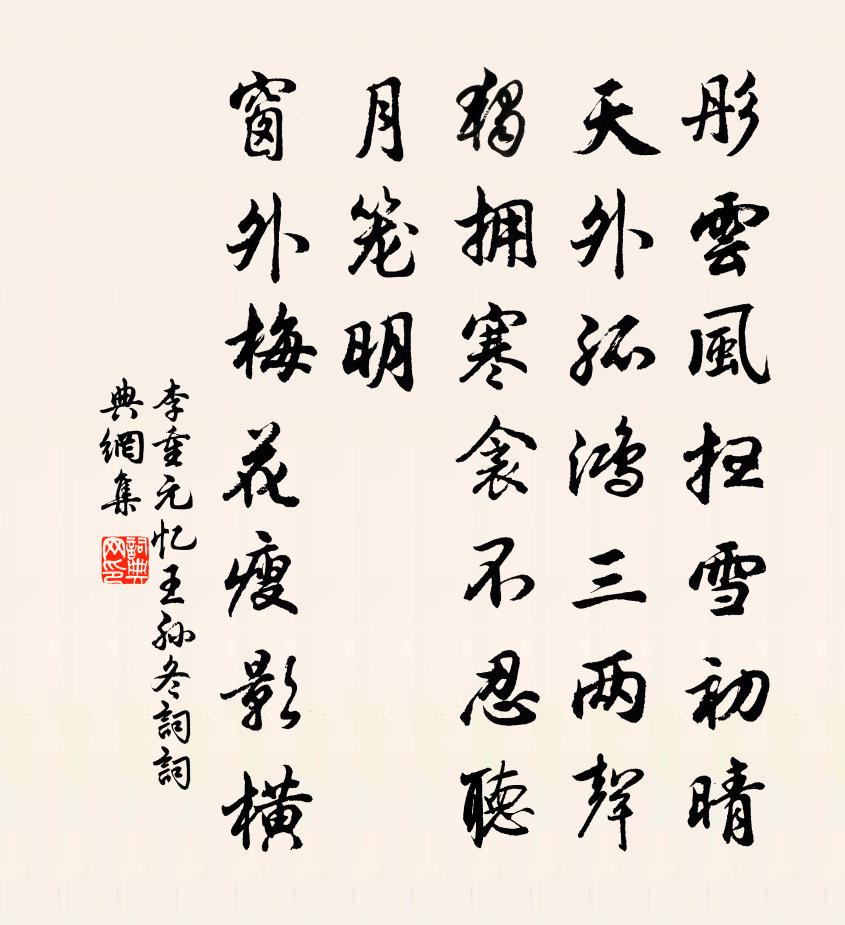 彤雲風扫雪初晴
天外孤鸿三两聲
獨拥寒衾不忍聽
月笼明
窗外梅花瘦影横
李重元忆王孙冬詞詞
典網集
詞典网印